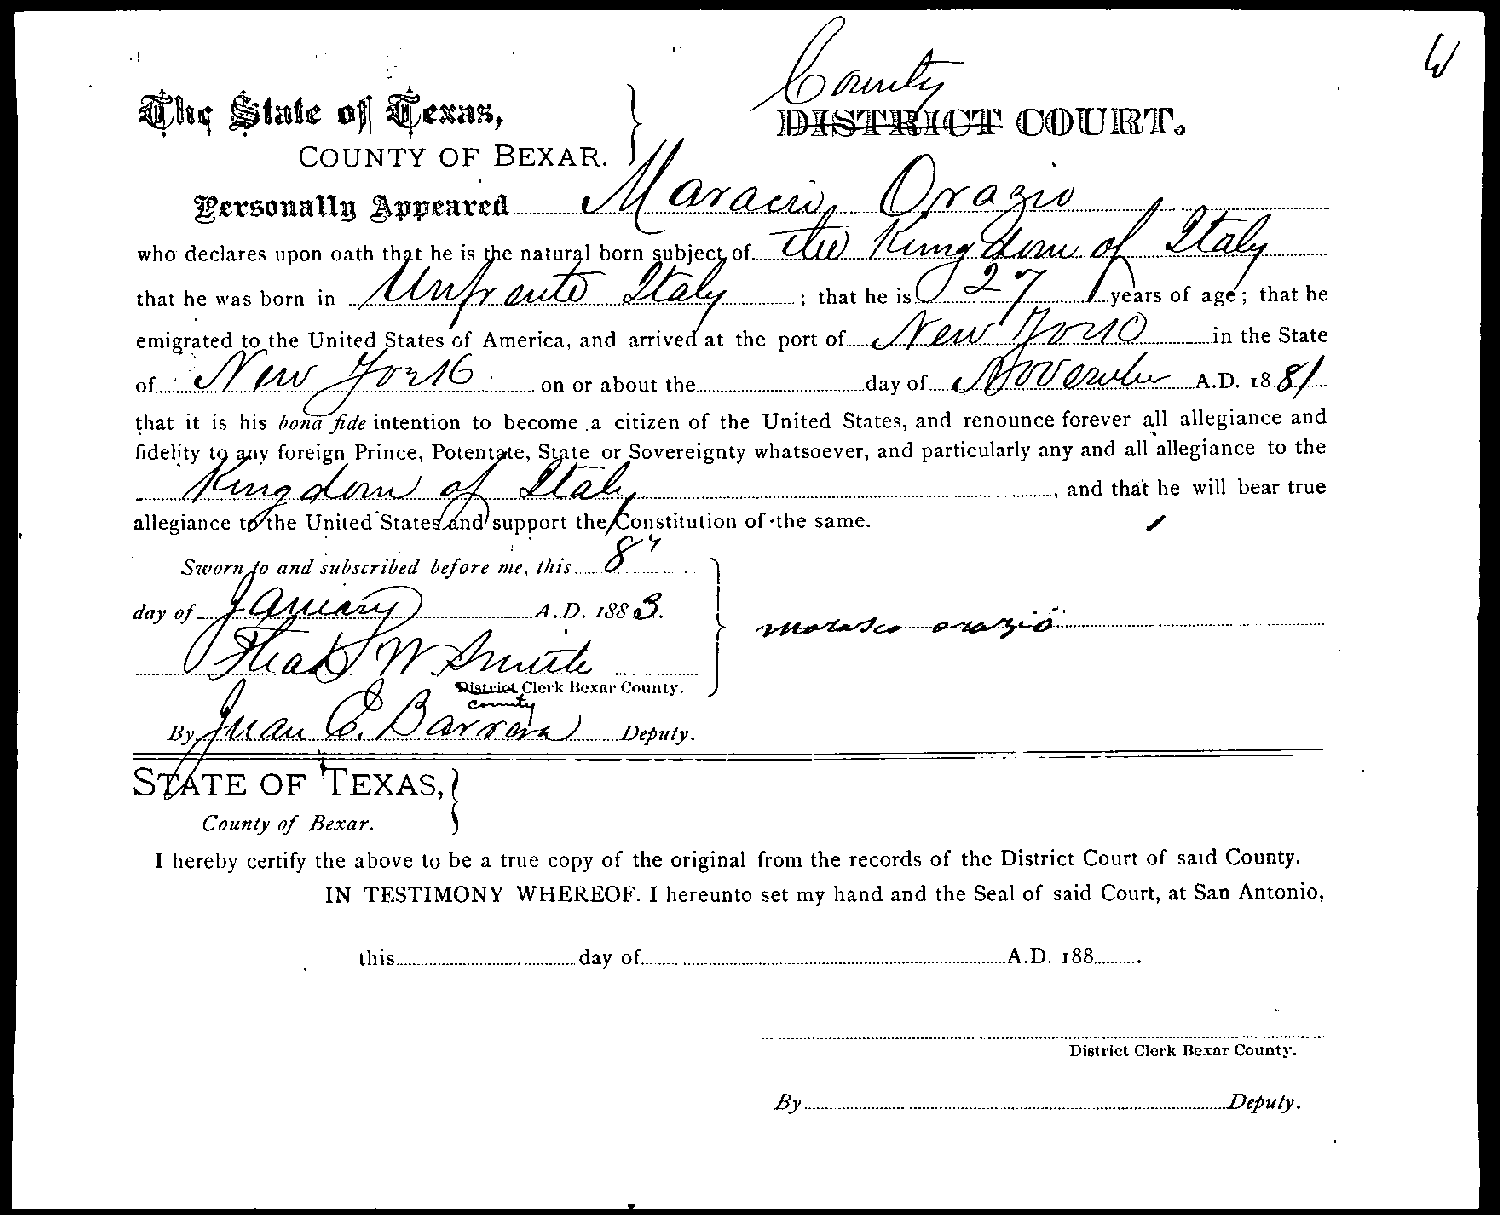 W
County
The State of Texas, } DISTRICT COURT.
COUNTY OF BEXAR.
Personally Appeared Maracio Orazio
who declares upon oath that he is the natural born subject of the Kingdom of Italy
that he was born in Italy ; that he is 27 years of age; that he
emigrated to the United States of America, and arrived at the port of New York in the State
of New York on or about the day of November A.D. 1881
that it is his bona fide intention to become a citizen of the United States, and renounce forever all allegiance and
fidelity to any foreign Prince, Potentate, State or Sovereignty whatsoever, and particularly any and all allegiance to the
Kingdom of Italy, and that he will bear true
allegiance to the United States and support the Constitution of the same.
Sworn to and subscribed before me, this 8"
day of January A.D. 1883.
orazio
Thad W Smith
District Clerk Bexar County.
county
By Juan E. Barrera Deputy.
STATE OF TEXAS, }
County of Bexar.
I hereby certify the above to be a true copy of the original from the records of the District Court of said County.
IN TESTIMONY WHEREOF. I hereunto set my hand and the Seal of said Court, at San Antonio,
this day of A.D. 188 .
District Clerk Bexar County.
By Deputy.